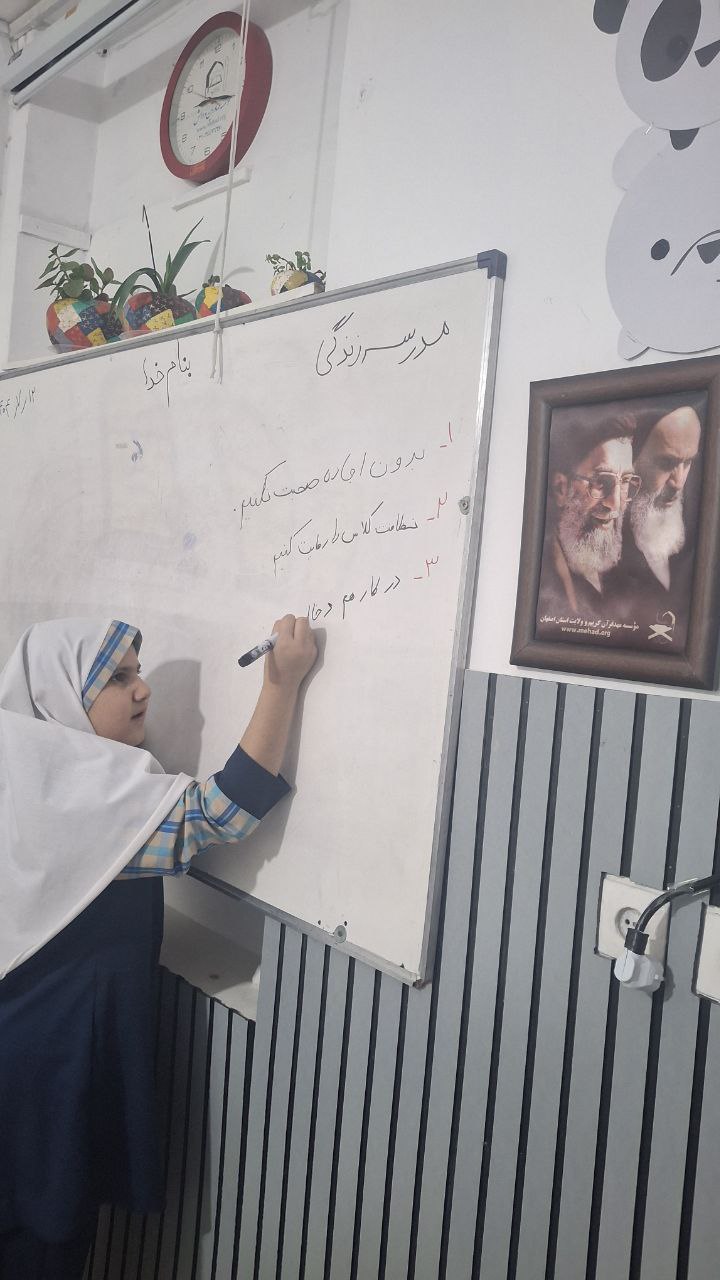 بنام خدا
مدرسه زندگی
۱- بدون اجازه صحبت نکنیم.
۲- نظافت کلاس را رعایت کنیم
۳- در کار هم دخا
مؤسسه مهدقرآن کریم و ولایت استان اصفهان
www.mehad.org